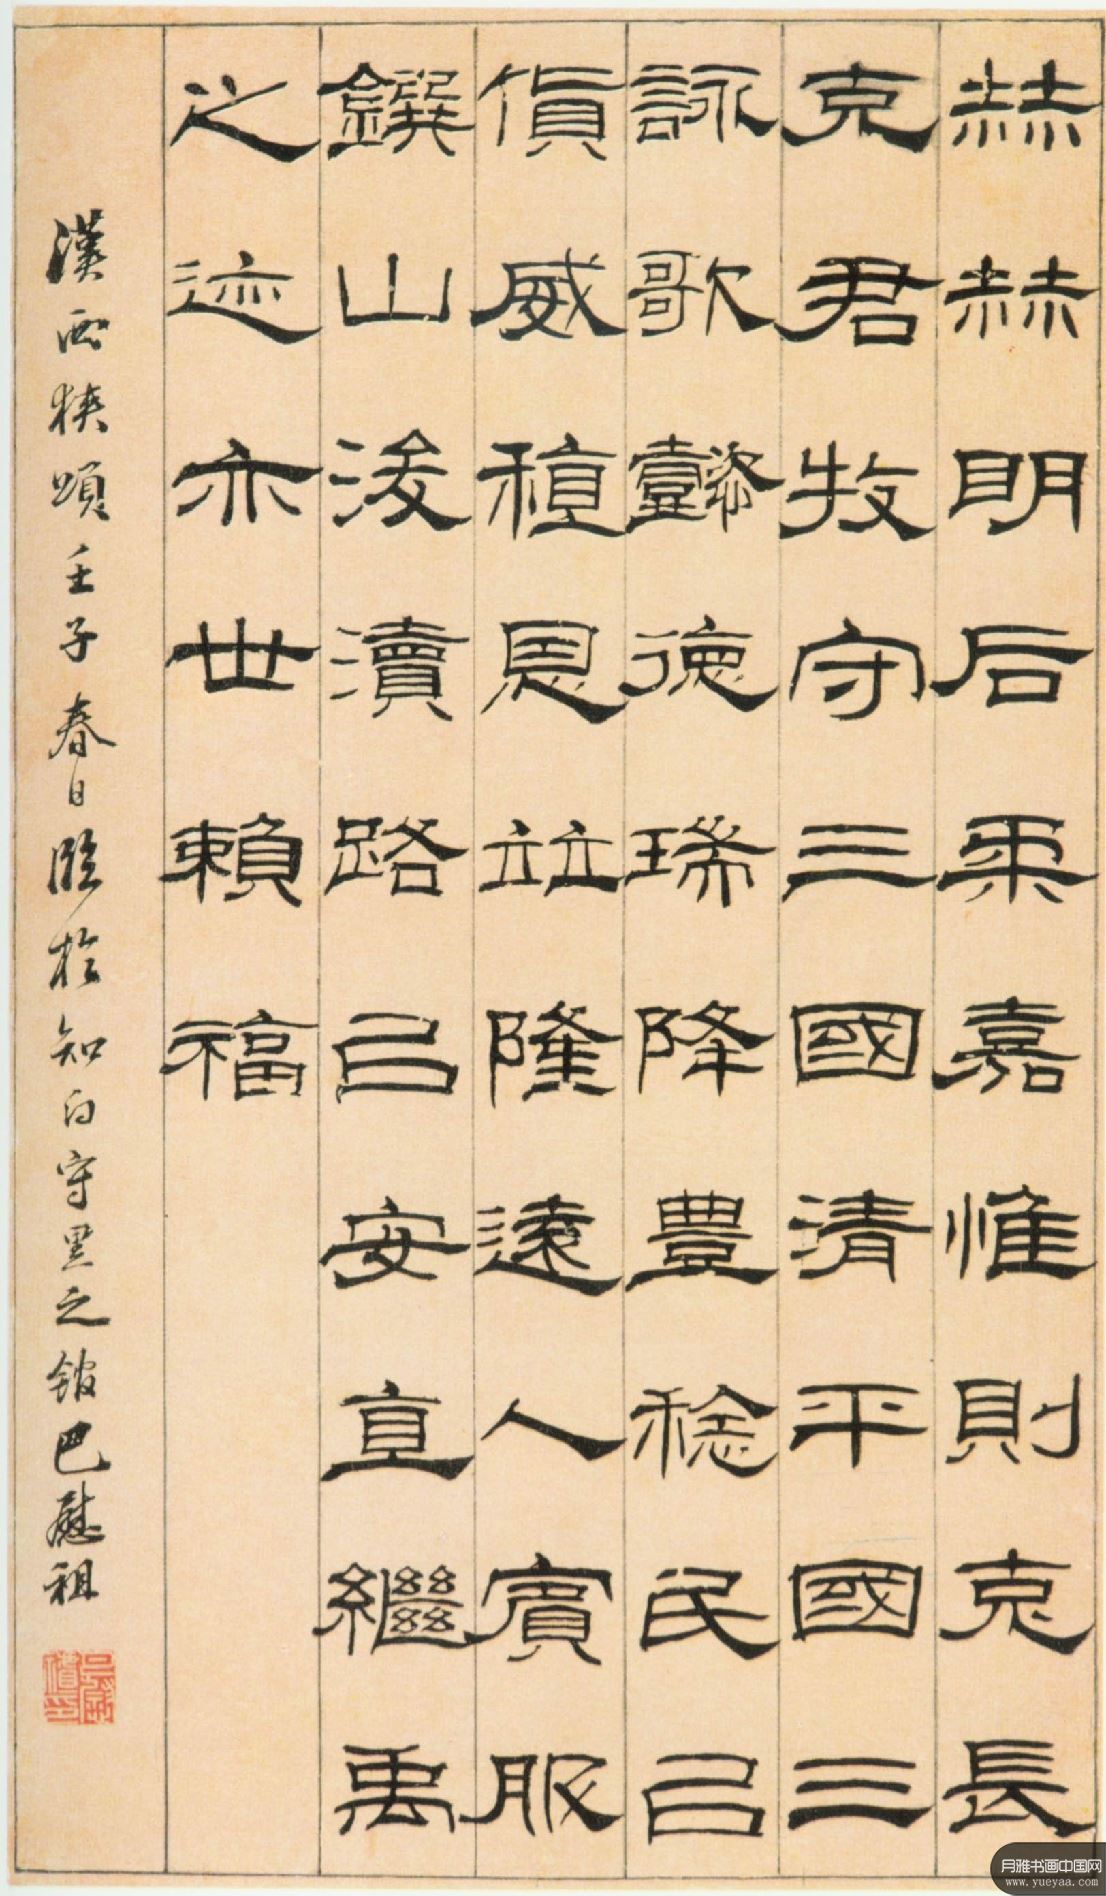 赫赫明后柔嘉惟則克長
克君牧守三國清平國三
詠歌懿德瑞降豊稔民㠯
貨威稙恩竝隆遠人賓服
鐉山浚瀆路㠯安直繼禹
之迹亦世賴福
漢西狹頌壬子春日臨於知白守黑之館巴慰祖
月雅书画中国网
www.yueyaa.com